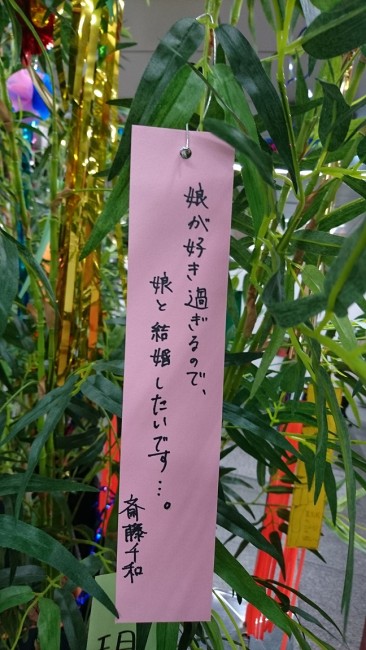 娘が好き過ぎるので、
娘と結婚したいです…。
斎藤千和